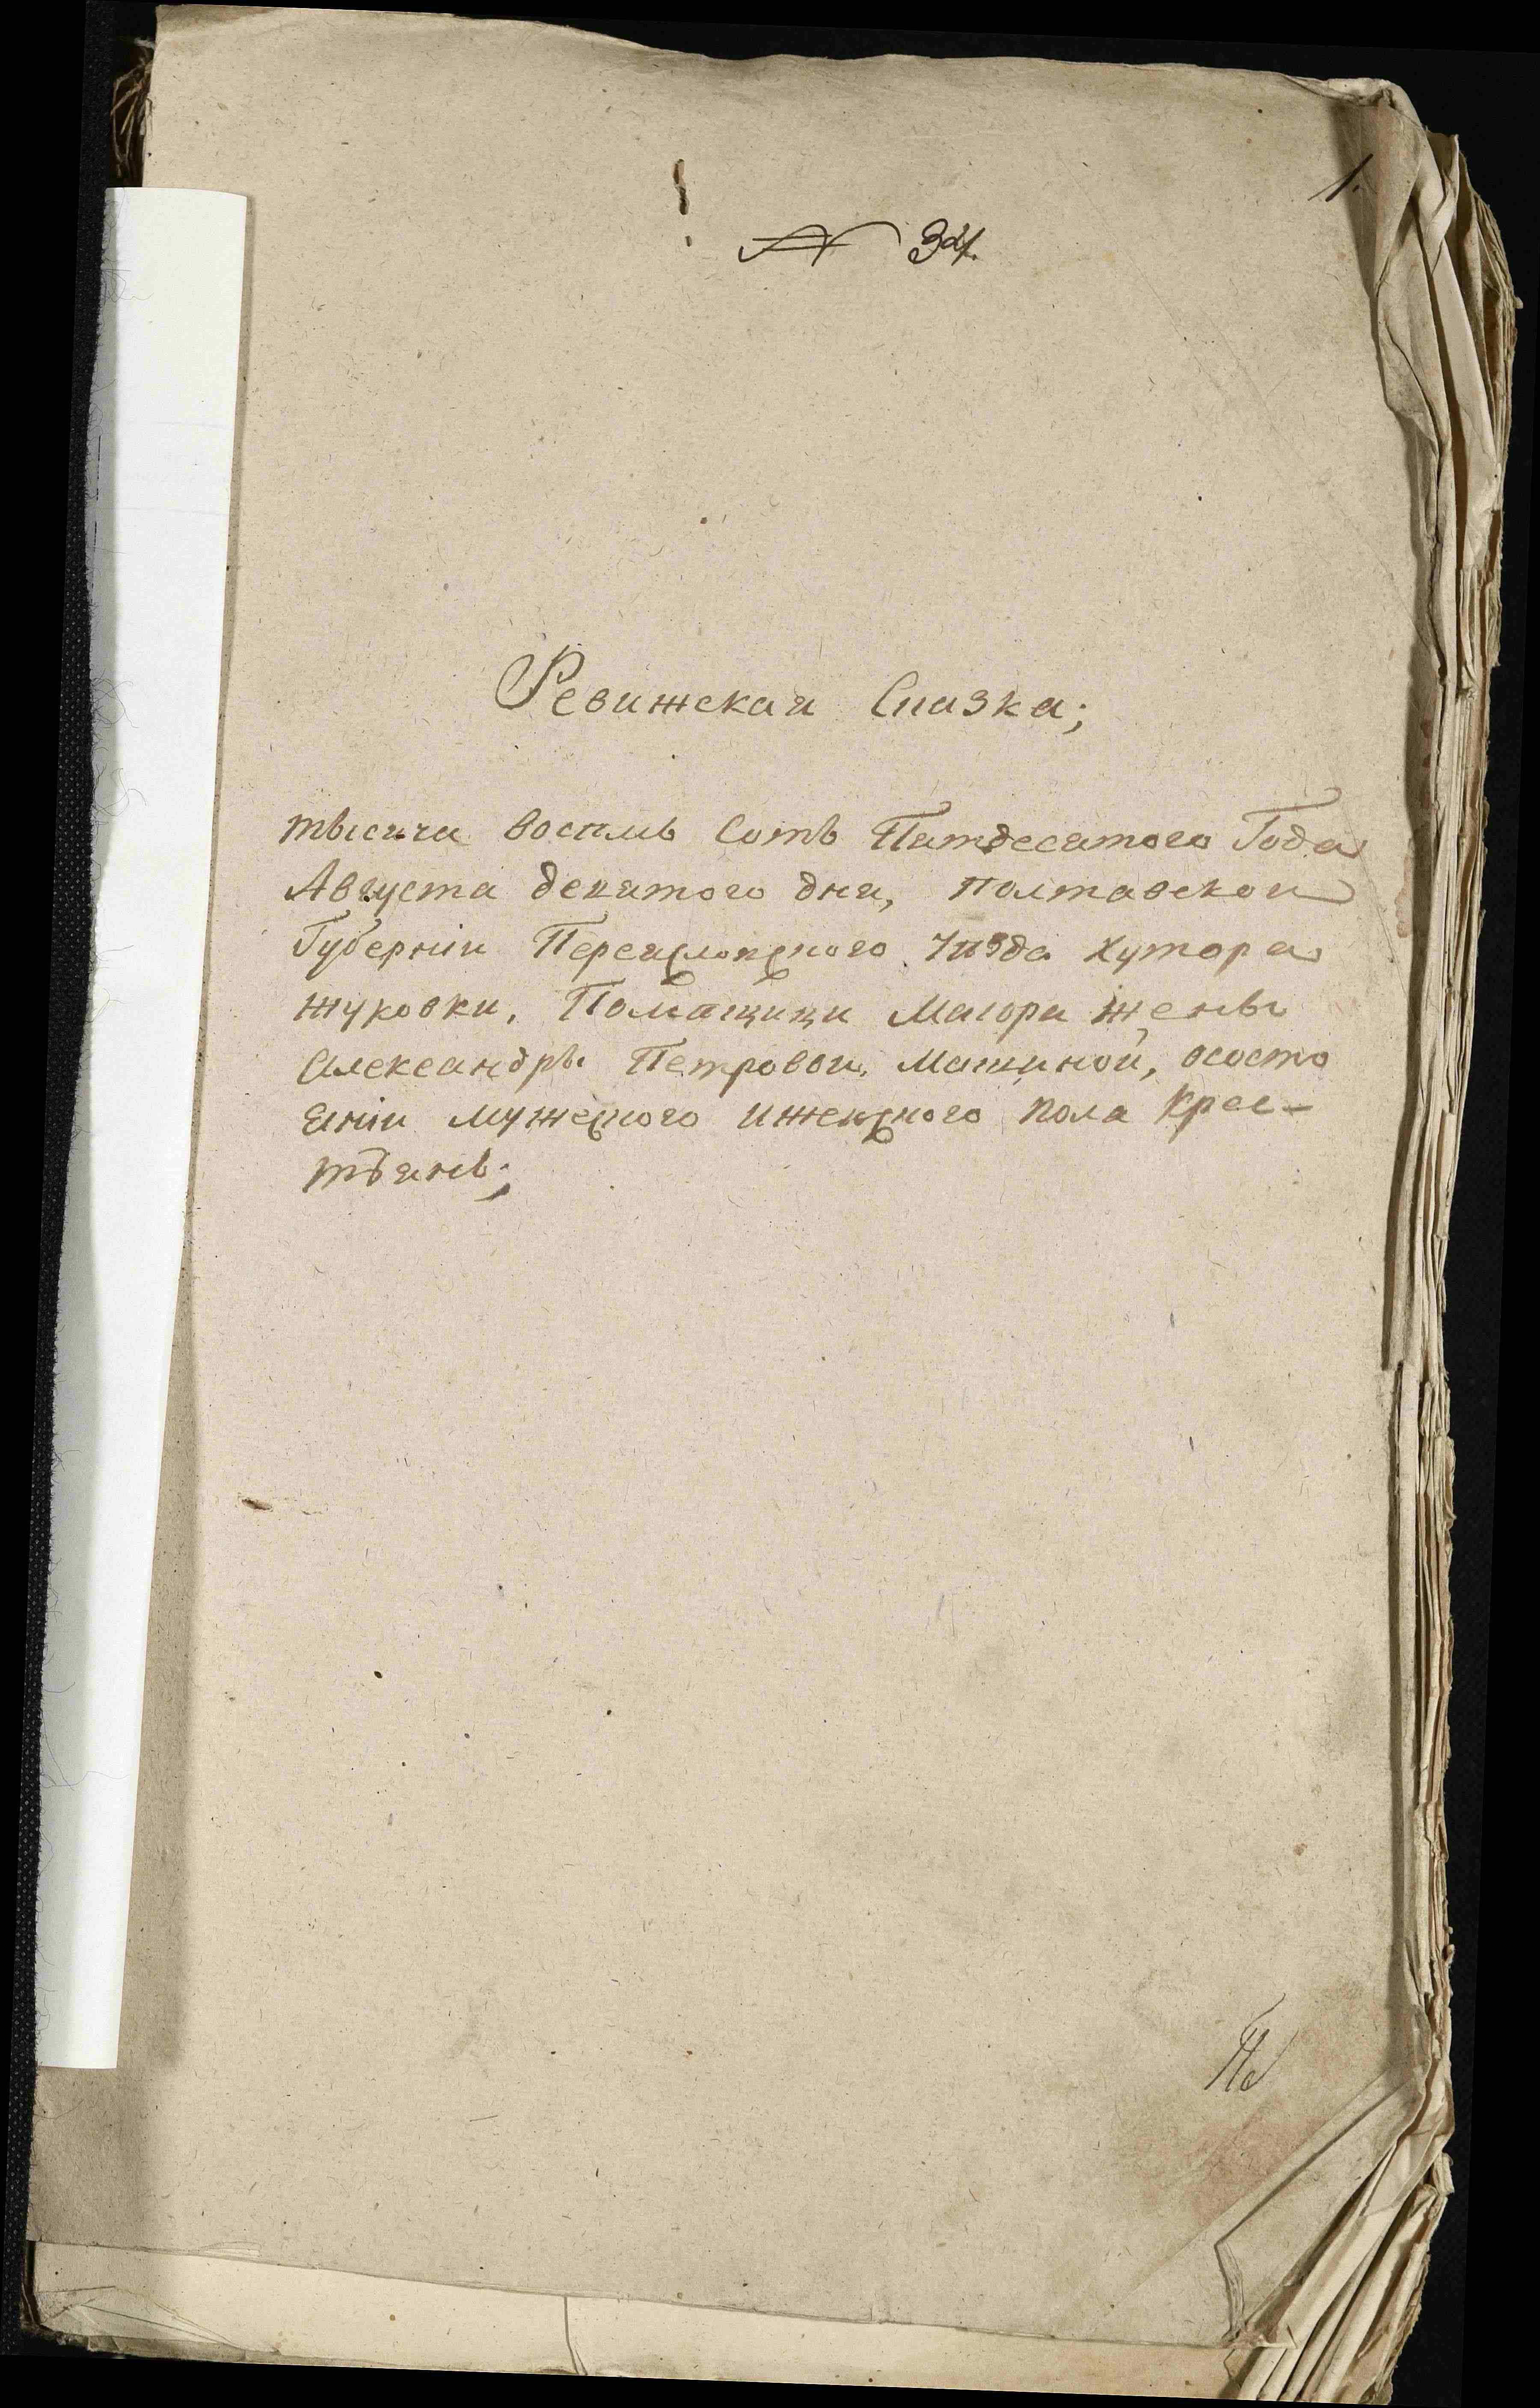 1.
№ 34.
Ревижская Сказка;
тысяча восемь сотъ Пятдесятого Года
Августа девятого дня, полтавской
Губерніи Переяславского Уѣзда хутора
жуковки, Помѣщицы Маіора жены
Александры Петровой, Машиной, ососто
яніи мужеского иженского пола крес-
тьянъ;